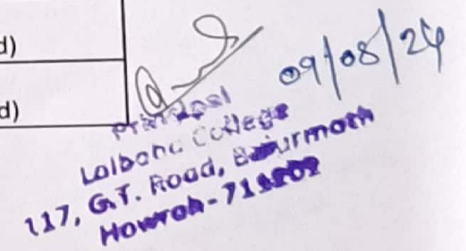 d)
d)
09/08/24
Principal
Lalbaba College
117, G.T. Road, Belurmath
Howrah-711202